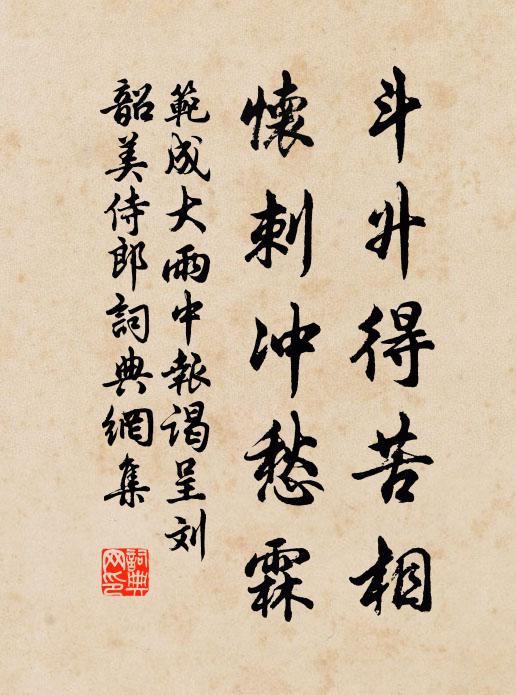 斗升得苦相
懷刺冲愁霖
範成大雨中報謁呈刘
韶美侍郎詞典網集
詞典网印